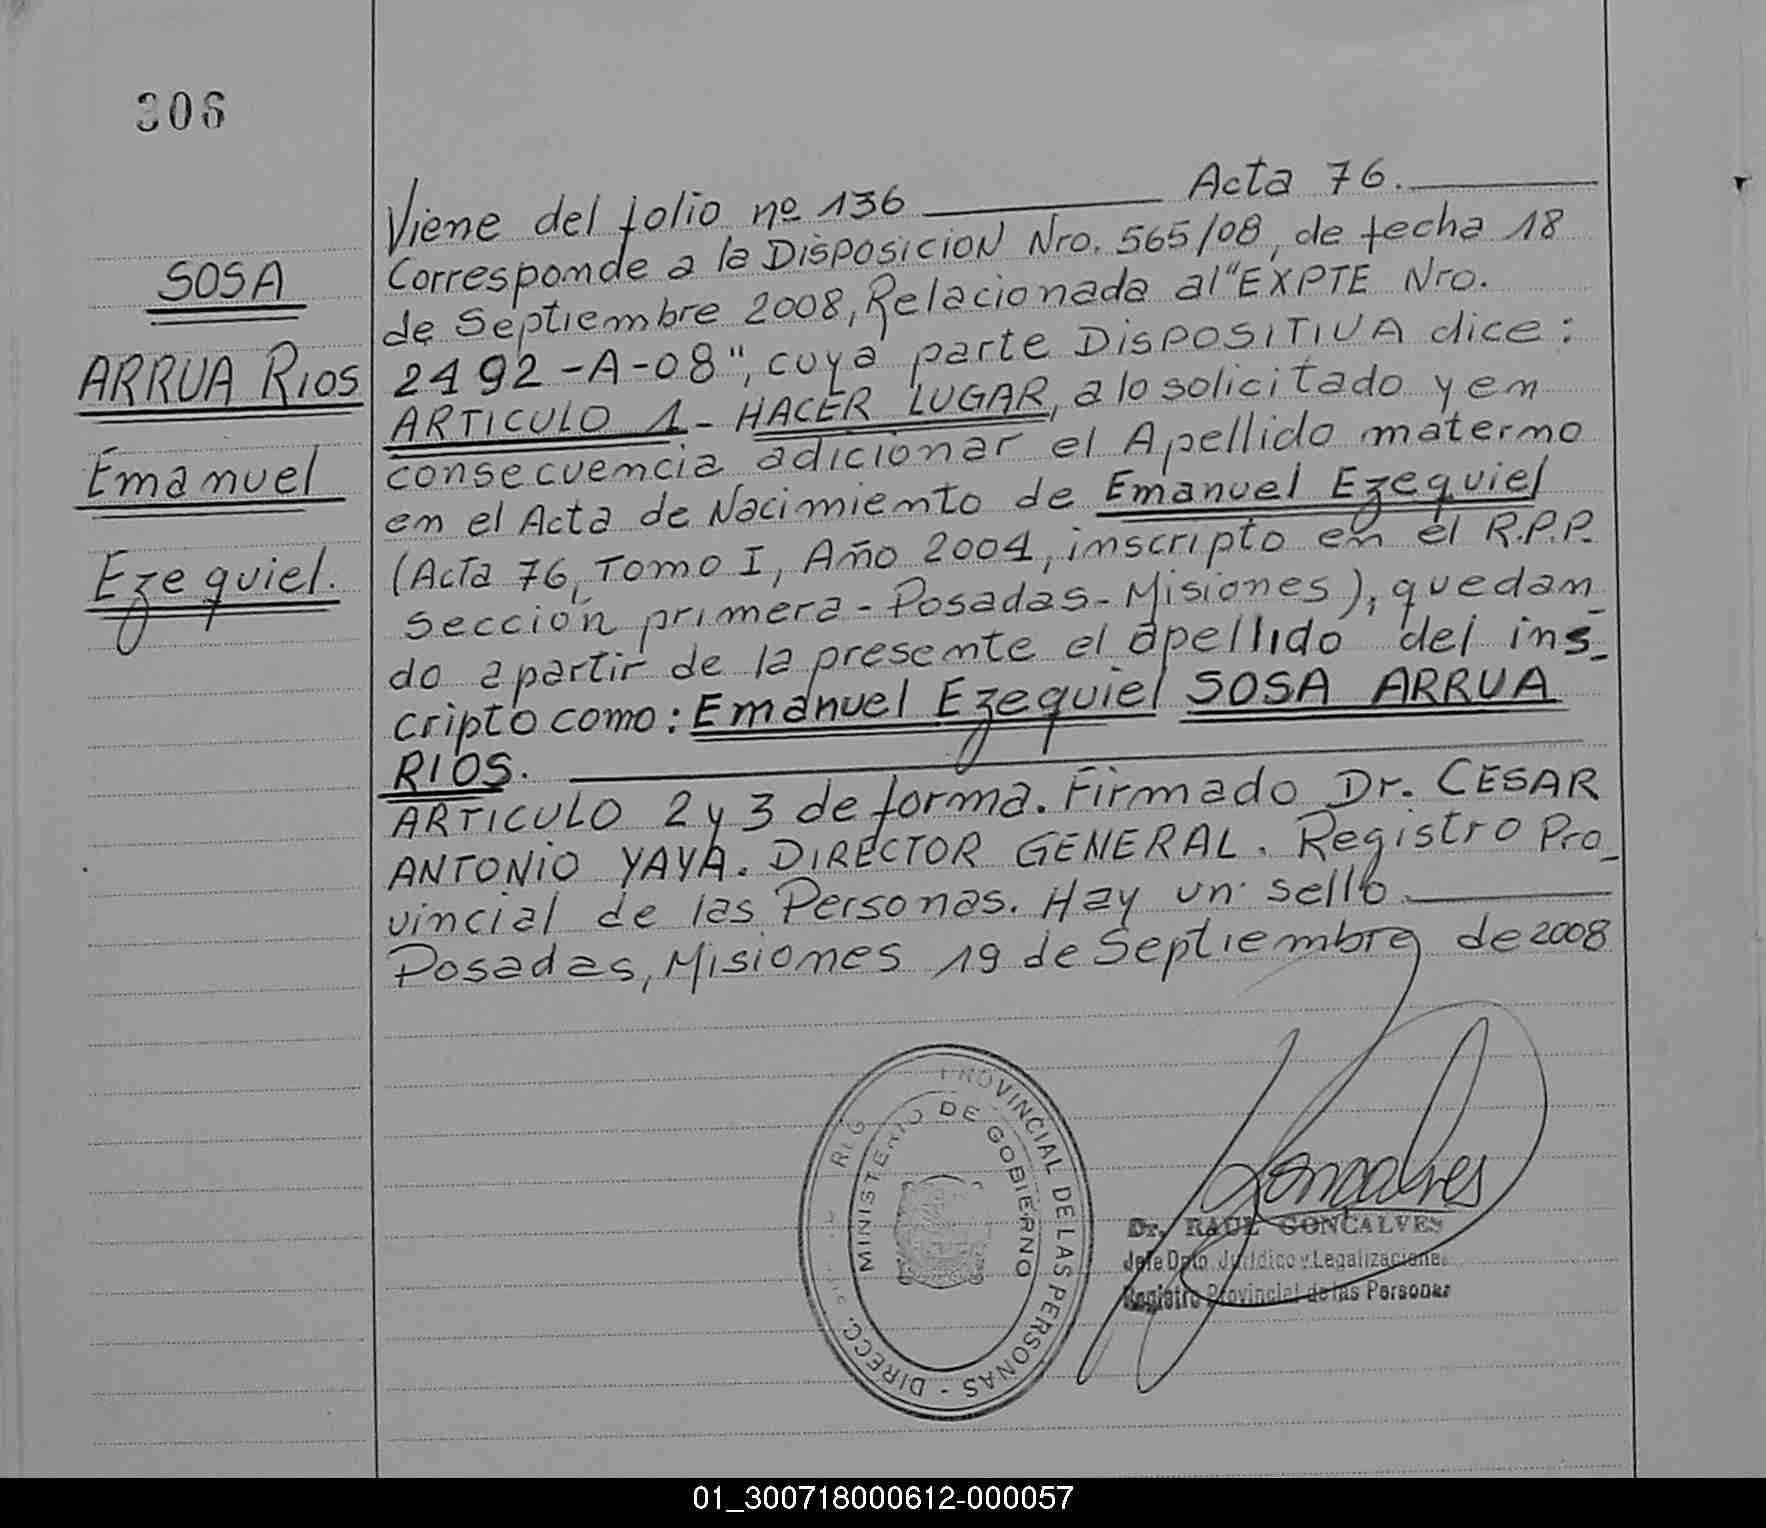 306
SOSA
ARRUA RIOS
Emanuel
Ezequiel.
Viene del folio nº 136 Acta 76.
Corresponde a la DISPOSICION Nro. 565/08, de fecha 18
de Septiembre 2008, Relacionada al "EXPTE Nro.
2492-A-08", cuya parte DISPOSITIVA dice:
ARTICULO 1- HACER LUGAR, a lo solicitado y en
consecuencia adicionar el Apellido materno
en el Acta de Nacimiento de Emanuel Ezequiel
(Acta 76, Tomo I, Año 2004, inscripto en el R.P.P.
sección primera - Posadas - Misiones), quedan_
do a partir de la presente el apellido del ins_
cripto como: Emanuel Ezequiel SOSA ARRUA
RIOS.
ARTICULO 2 y 3 de forma. Firmado Dr. CESAR
ANTONIO YAYA. DIRECTOR GENERAL. Registro Pro_
vincial de las Personas. Hay un sello
Posadas, Misiones 19 de Septiembre de 2008
PROVINCIAL DE LAS PERSONAS - DIRECC.
MINISTERIO DE GOBIERNO
Goncalves
Dr. RAUL GONCALVES
Jefe Dpto. Jurídico y Legalizaciones
Registro Provincial de las Personas
01_300718000612-000057